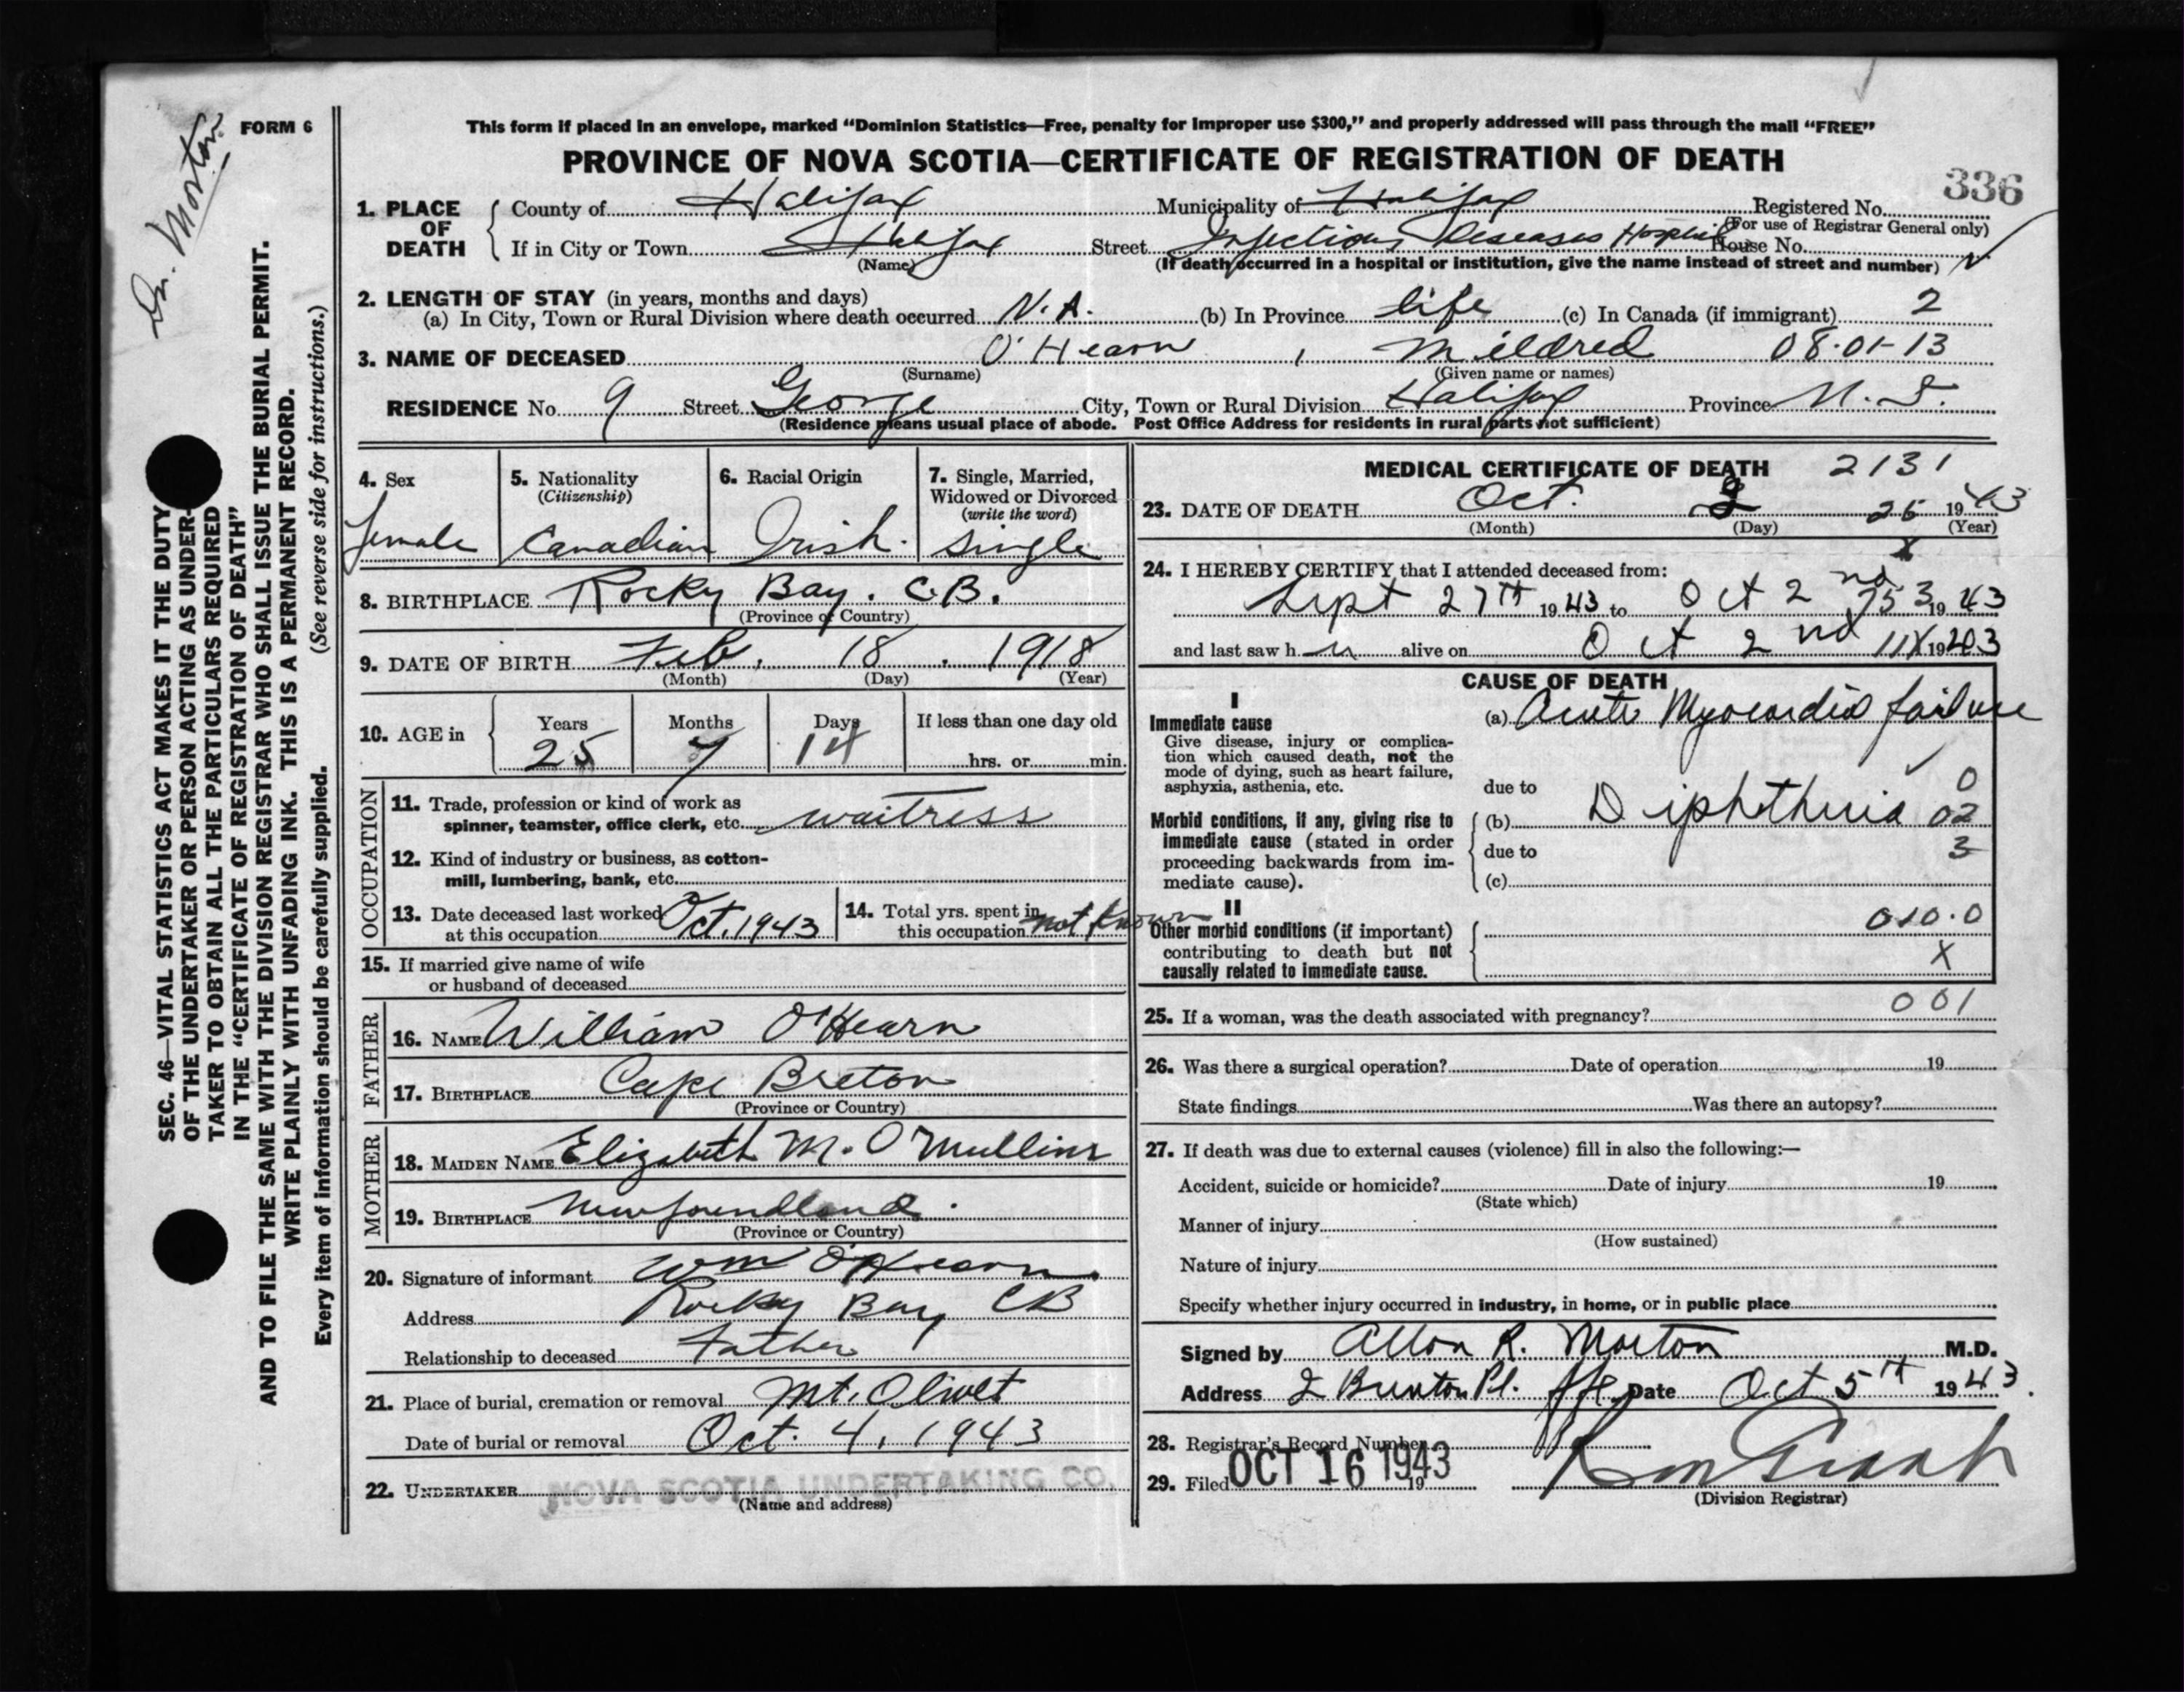 Dr. Morton
FORM 6
SEC. 46—VITAL STATISTICS ACT MAKES IT THE DUTY
OF THE UNDERTAKER OR PERSON ACTING AS UNDER-
TAKER TO OBTAIN ALL THE PARTICULARS REQUIRED
IN THE "CERTIFICATE OF REGISTRATION OF DEATH"
AND TO FILE THE SAME WITH THE DIVISION REGISTRAR WHO SHALL ISSUE THE BURIAL PERMIT.
WRITE PLAINLY WITH UNFADING INK. THIS IS A PERMANENT RECORD.
Every item of information should be carefully supplied. (See reverse side for instructions.)
This form if placed in an envelope, marked "Dominion Statistics—Free, penalty for improper use $300," and properly addressed will pass through the mail "FREE"
PROVINCE OF NOVA SCOTIA—CERTIFICATE OF REGISTRATION OF DEATH
336
1. PLACE OF DEATH
County of Halifax Municipality of Halifax Registered No.
(For use of Registrar General only)
If in City or Town Halifax Street Infectious Diseases Hospital House No.
(Name) (If death occurred in a hospital or institution, give the name instead of street and number)
2. LENGTH OF STAY (in years, months and days)
(a) In City, Town or Rural Division where death occurred N.A. (b) In Province life (c) In Canada (if immigrant) 2
3. NAME OF DECEASED O'Hearn, Mildred 08-01-13
(Surname) (Given name or names)
RESIDENCE No. 9 Street George City, Town or Rural Division Halifax Province N.S.
(Residence means usual place of abode. Post Office Address for residents in rural parts not sufficient)
4. Sex
female
5. Nationality
(Citizenship)
Canadian
6. Racial Origin
Irish.
7. Single, Married,
Widowed or Divorced
(write the word)
single
8. BIRTHPLACE Rocky Bay. C.B.
(Province or Country)
9. DATE OF BIRTH Feb. 18. 1918
(Month) (Day) (Year)
10. AGE in
Years Months Days If less than one day old
25 7 14 hrs. or min.
OCCUPATION
11. Trade, profession or kind of work as
spinner, teamster, office clerk, etc. waitress
12. Kind of industry or business, as cotton-
mill, lumbering, bank, etc.
13. Date deceased last worked
at this occupation Oct. 1943
14. Total yrs. spent in
this occupation not known
15. If married give name of wife
or husband of deceased
FATHER
16. NAME William O'Hearn
17. BIRTHPLACE Cape Breton
(Province or Country)
MOTHER
18. MAIDEN NAME Elizabeth M. O'Mullins
19. BIRTHPLACE Newfoundland.
(Province or Country)
20. Signature of informant Wm O'Hearn
Address Rocky Bay CB
Relationship to deceased Father
21. Place of burial, cremation or removal Mt. Olivet
Date of burial or removal Oct. 4, 1943
22. UNDERTAKER NOVA SCOTIA UNDERTAKING CO.
(Name and address)
MEDICAL CERTIFICATE OF DEATH 2131
23. DATE OF DEATH Oct. 2 25 1943
(Month) (Day) (Year)
x
24. I HEREBY CERTIFY that I attended deceased from:
Sept 27th 1943 to Oct 2nd 1943
and last saw h alive on Oct 2nd 1943
CAUSE OF DEATH
I
Immediate cause
Give disease, injury or complica-
tion which caused death, not the
mode of dying, such as heart failure,
asphyxia, asthenia, etc.
(a) Acute Myocardial failure
due to 0
Morbid conditions, if any, giving rise to
immediate cause (stated in order
proceeding backwards from im-
mediate cause).
(b) Diphtheria 02
due to 3
(c)
II
Other morbid conditions (if important)
contributing to death but not
causally related to immediate cause.
010.0
X
25. If a woman, was the death associated with pregnancy? 001
26. Was there a surgical operation? Date of operation 19
State findings Was there an autopsy?
27. If death was due to external causes (violence) fill in also the following:—
Accident, suicide or homicide? Date of injury 19
(State which)
Manner of injury
(How sustained)
Nature of injury
Specify whether injury occurred in industry, in home, or in public place
Signed by Allan R. Morton M.D.
Address 2 Brunton Pl. Hfx. Date Oct 5th 1943.
28. Registrar's Record Number
29. Filed OCT 16 1943 19
(Division Registrar)